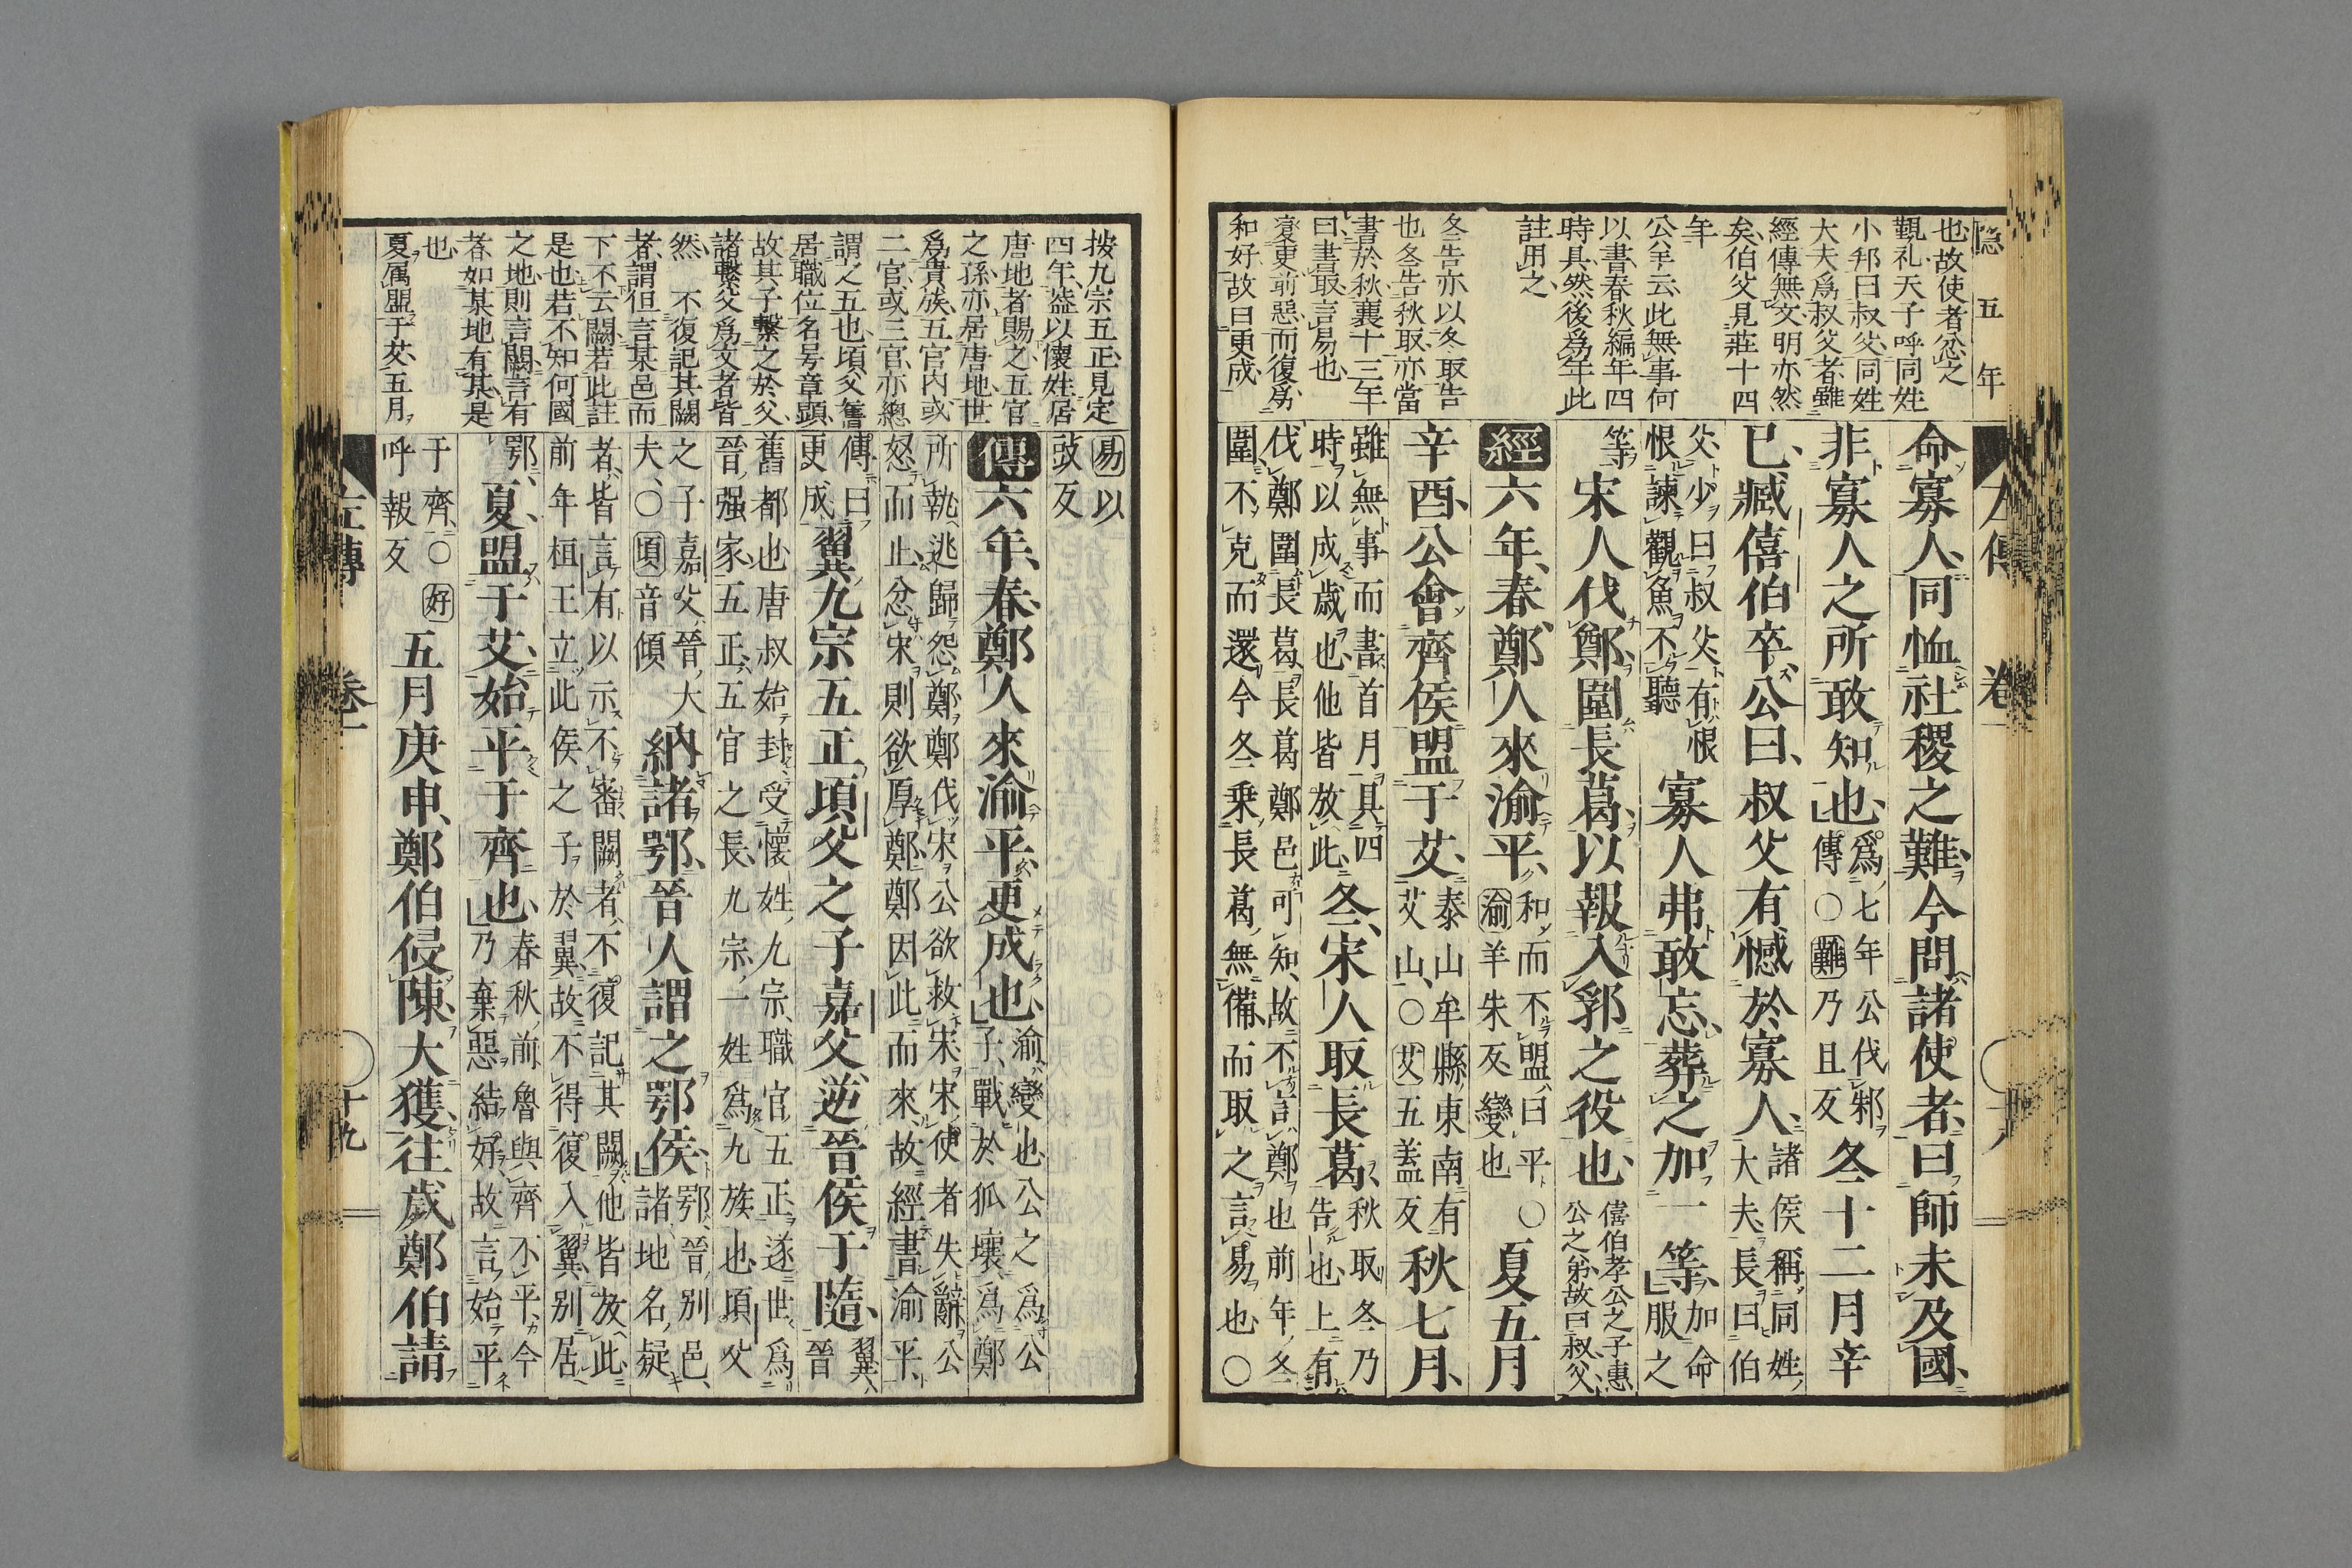 隠五年
左傳 卷一
也故使者忿之
覲礼天子呼同姓
小邦曰叔父同姓
大夫爲叔父者雖
經傳無文明亦然
矣伯父見莊十四
年
公羊云此無事何
以書春秋編年四
時具然後爲年此
註用之
冬告亦以冬取告
也冬告秋取亦當
書於秋襄十三年
曰書取言易也
變更前惡而復爲
和好故曰更成
命寡人同恤社稷之難今問諸使者曰師未及國
非寡人之所敢知也爲七年公伐邾傳○難乃且反冬十二月辛
已臧僖伯卒公曰叔父有憾於寡人諸侯稱同姓大夫長曰伯
父少曰叔父有恨恨諫觀魚不聽寡人弗敢忘葬之加一等加命服之
等宋人伐鄭圍長葛以報入郛之役也僖伯孝公之子惠公之弟故曰叔父
經六年春鄭人來渝平和而不盟曰平○渝羊朱反變也夏五月
辛酉公會齊侯盟于艾泰山牟縣東南有艾山○艾五蓋反秋七月
雖無事而書首月具四時以成歲也他皆放此冬宋人取長葛秋取冬乃告也上有
伐鄭圍長葛長葛鄭邑可知故不言鄭也前年冬圍不克而還今冬乗長葛無備而取之言易也○
按九宗五正見定
四年蓋以懷姓居
唐地者賜之五官
之孫亦居唐地世
爲貴族五官内或
二官或三官亦總
謂之五也頃父舊
居職位名号章顕
故其子繫之於父
諸繫父爲文者皆
然不復記其闕
者謂但言某邑而
下不云闕若此註
是也若不知何國
之地則言闕言有
者如某地有某是
也
夏属盟于艾五月
易以豉反
傳六年春鄭人來渝平更成也渝變也公之爲公子戰於狐壤爲鄭
所執逃歸怨鄭鄭伐宋公欲救宋宋使者失辭公怒而止忿宋則欲厚鄭鄭因此而來故經書渝平
傳曰更成翼九宗五正頃父之子嘉父逆晉侯于隨翼晉
舊都也唐叔始封受懷姓九宗職官五正遂世爲晉强家五正五官之長九宗一姓爲九族也頃父
之子嘉父晉大夫○頃音傾納諸鄂晉人謂之鄂侯鄂晉別邑諸地名疑
者皆言有以示不審闕者不復記其闕他皆放此前年桓王立此侯之子於翼故不得復入翼别居
鄂夏盟于艾始平于齊也春秋前魯與齊不平今乃棄惡結好故言始平
于齊○好呼報反五月庚申鄭伯侵陳大獲往歲鄭伯請
左傳 卷一 十九